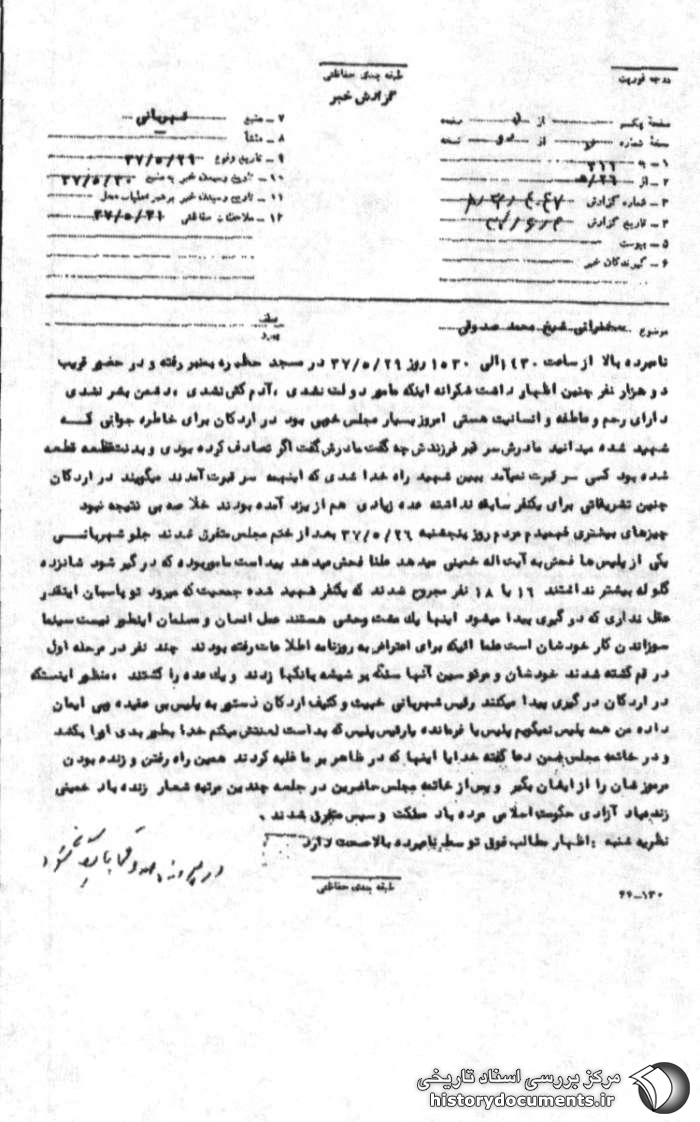 درجه فوریت
طبقه بندی حفاظتی
گزارش خبر
صفحه یکم از صفحه
نسخه شماره از دو نسخه
۱ ـ به ۳۱۲
۲ ـ از ۵/۲۶
۳ ـ شماره گزارش
۴ ـ تاریخ گزارش
۵ ـ پیوست
۶ ـ گیرندگان خبر
۷ ـ منبع شهربانی
۸ ـ منشأ
۹ ـ تاریخ وقوع ۳۷/۵/۲۹
۱۰ ـ تاریخ رسیدن خبر به منبع ۳۷/۵/۳۰
۱۱ ـ تاریخ رسیدن خبر برهبر عملیات محل
۱۲ ـ ملاحظات حفاظتی ۳۷/۵/۳۱
موضوع سخنرانی شیخ محمد صدوقی
نامبرده بالا از ساعت ۱۴۳۰ الی ۱۵۳۰ روز ۳۷/۵/۲۹ در مسجد حظیره بمنبر رفته و در حضور قریب
دو هزار نفر چنین اظهار داشت شکرانه اینکه مامور دولت نشدی ، آدم کش نشدی ، دشمن بشر نشدی
دارای رحم و عاطفه و انسانیت هستی امروز بسیار مجلس خوبی بود در اردکان برای خاطره جوانی کـه
شهید شده میدانید مادرش سر قبر فرزندش چه گفت مادرش گفت اگر تصادف کرده بودی و بدنت قطعه قطعه
شده بود کسی سر قبرت نمیآمد ببین شهید راه خدا شدی که اینهمه سر قبرت آمدند میگویند در اردکان
چنین تشریفاتی برای یکنفر سابقه نداشته عده زیادی هم از یزد آمده بودند خلاصه بی نتیجه نبود
چیزهای بیشتری فهمیدم مردم روز پنجشنبه ۳۷/۵/۲۶ بعد از ختم مجلس متفرق شدند جلو شهربانـی
یکی از پلیس ها فحش به آیت اله خمینی میدهد علنا فحش میدهد پیداست مامور بوده که درگیر شود شانزده
گلوله بیشتر نداشتند ۱۶ یا ۱۸ نفر مجروح شدند که یکنفر شهید شده جمعیت که میرود تو پاسبان اینقدر
عقل نداری که درگیری پیدا میشود اینها یك مشت وحشی هستند عمل انسان و مسلمان اینطور نیست سینما
سوزاندن کار خودشان است علما ائیکه برای اعتراض به روزنامه اطلاعات رفته بودند چند نفر در مرحله اول
در قم کشته شدند خودشان و مرئوسین آنها سنگ بر شیشه بانکها زدند و یك عده را کشتند ، منظور اینستکه
در اردکان درگیری پیدا میکنند رئیس شهربانی خبیث و کثیف اردکان دستور به پلیس بی عقیده وبی ایمان
داده من همه پلیس نمیگویم پلیس یا فرمانده یا رئیس پلیس که بد است لعنتش میکنم خدا بطور بدی اورا بکشد
و در خاتمه مجلس ضمن دعا گفته خدایا اینها که در ظاهر بر ما غلبه کردند همین راه رفتن و زنده بودن
مرموزشان را از ایشان بگیر و پس از خاتمه مجلس حاضرین در جلسه چندین مرتبه شعار زنده باد خمینی
زنده باد آزادی حکومت اسلامی مرده باد مملکت و سپس متفرق شدند .
نظریه شنبه : اظهار مطالب فوق توسط نامبرده بالا صحت دارد
در پرونده صدوقی بایگانی شود
طبقه بندی حفاظتی
۶۶-۱۳۰
مرکز بررسی اسناد تاریخی
historydocuments.ir